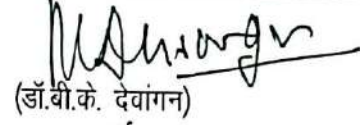 (डॉ.बी.के. देवांगन)